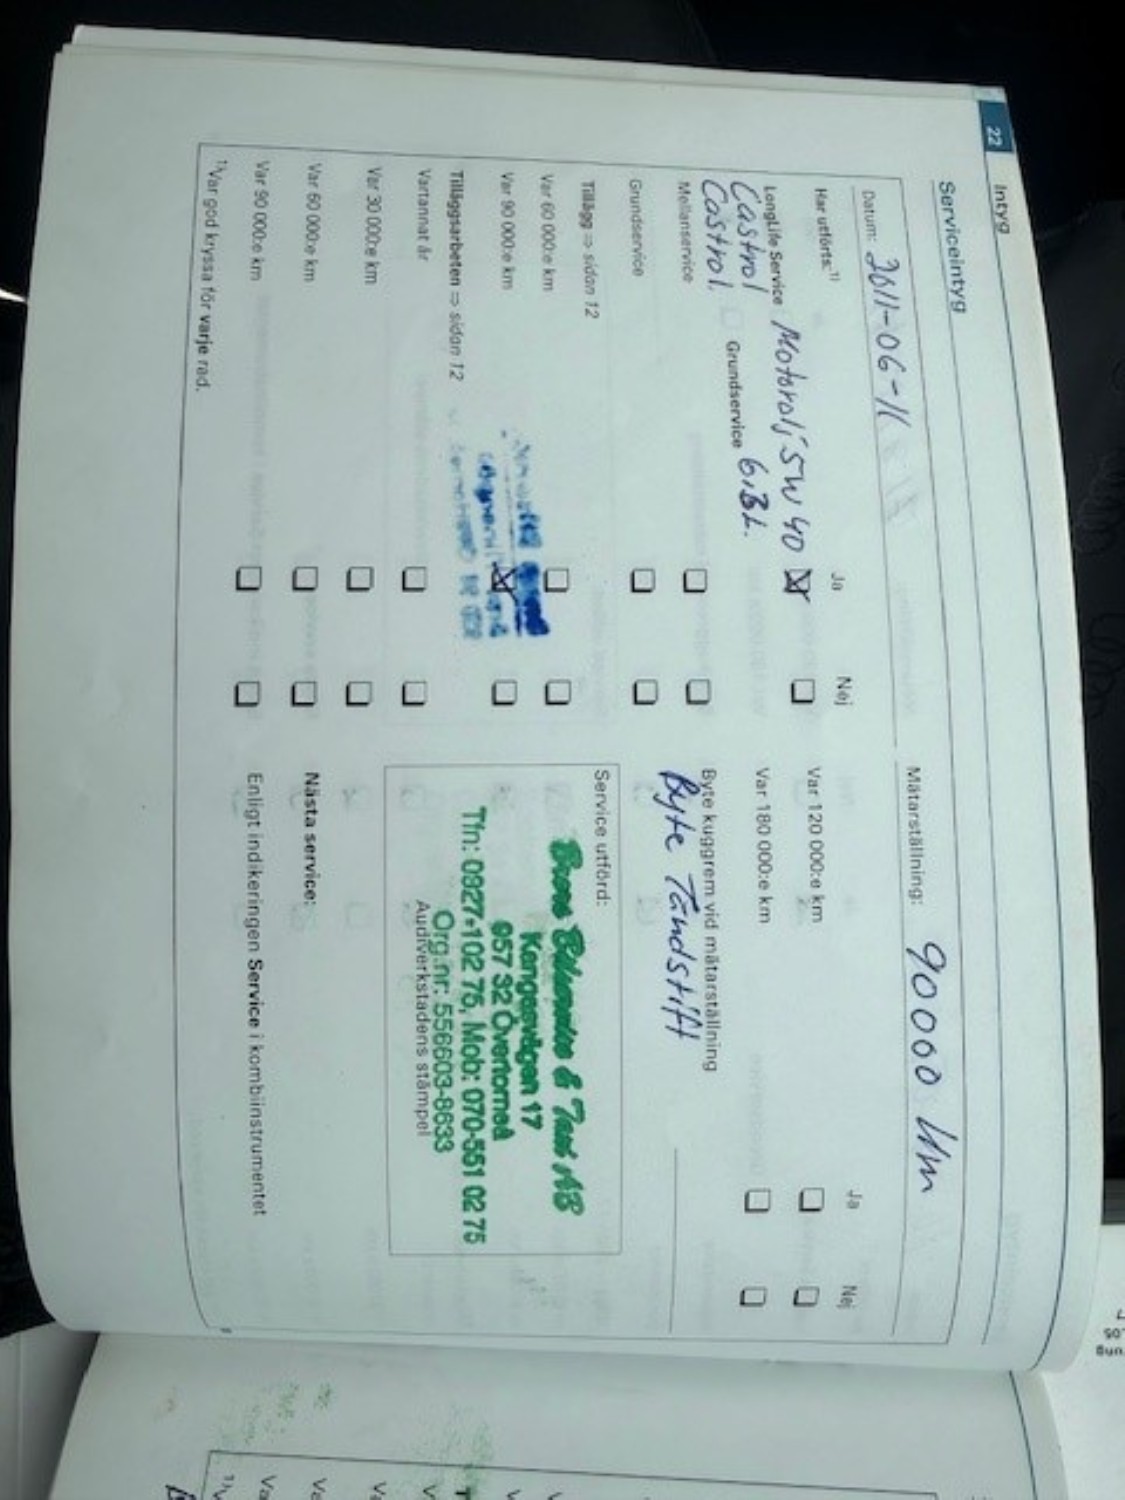 22
Intyg
Serviceintyg
Datum: 2011-06-
Mätarställning: 90000 km
Har utförts:¹⁾
Ja
Nej
LongLife Service Motorolj 5W40
Castrol Grundservice 6,3L.
Castrol.
Mellanservice
Grundservice
Tillägg ⇒ sidan 12
Var 60 000:e km
Var 90 000:e km
Tilläggsarbeten ⇒ sidan 12
Vartannat år
Var 30 000:e km
Var 60 000:e km
Var 90 000:e km
¹⁾Var god kryssa för varje rad.
Ja
Nej
Var 120 000:e km
Var 180 000:e km
Byte kuggrem vid mätarställning
Byte Tändstift
Service utförd:
& AB
Kengesvägen 17
957 32 Övertorneå
Tfn: 0927-102 75, Mob: 070-551 02 75
Org.nr: 556603-8633
Audiverkstadens stämpel
Nästa service:
Enligt indikeringen Service i kombiinstrumentet